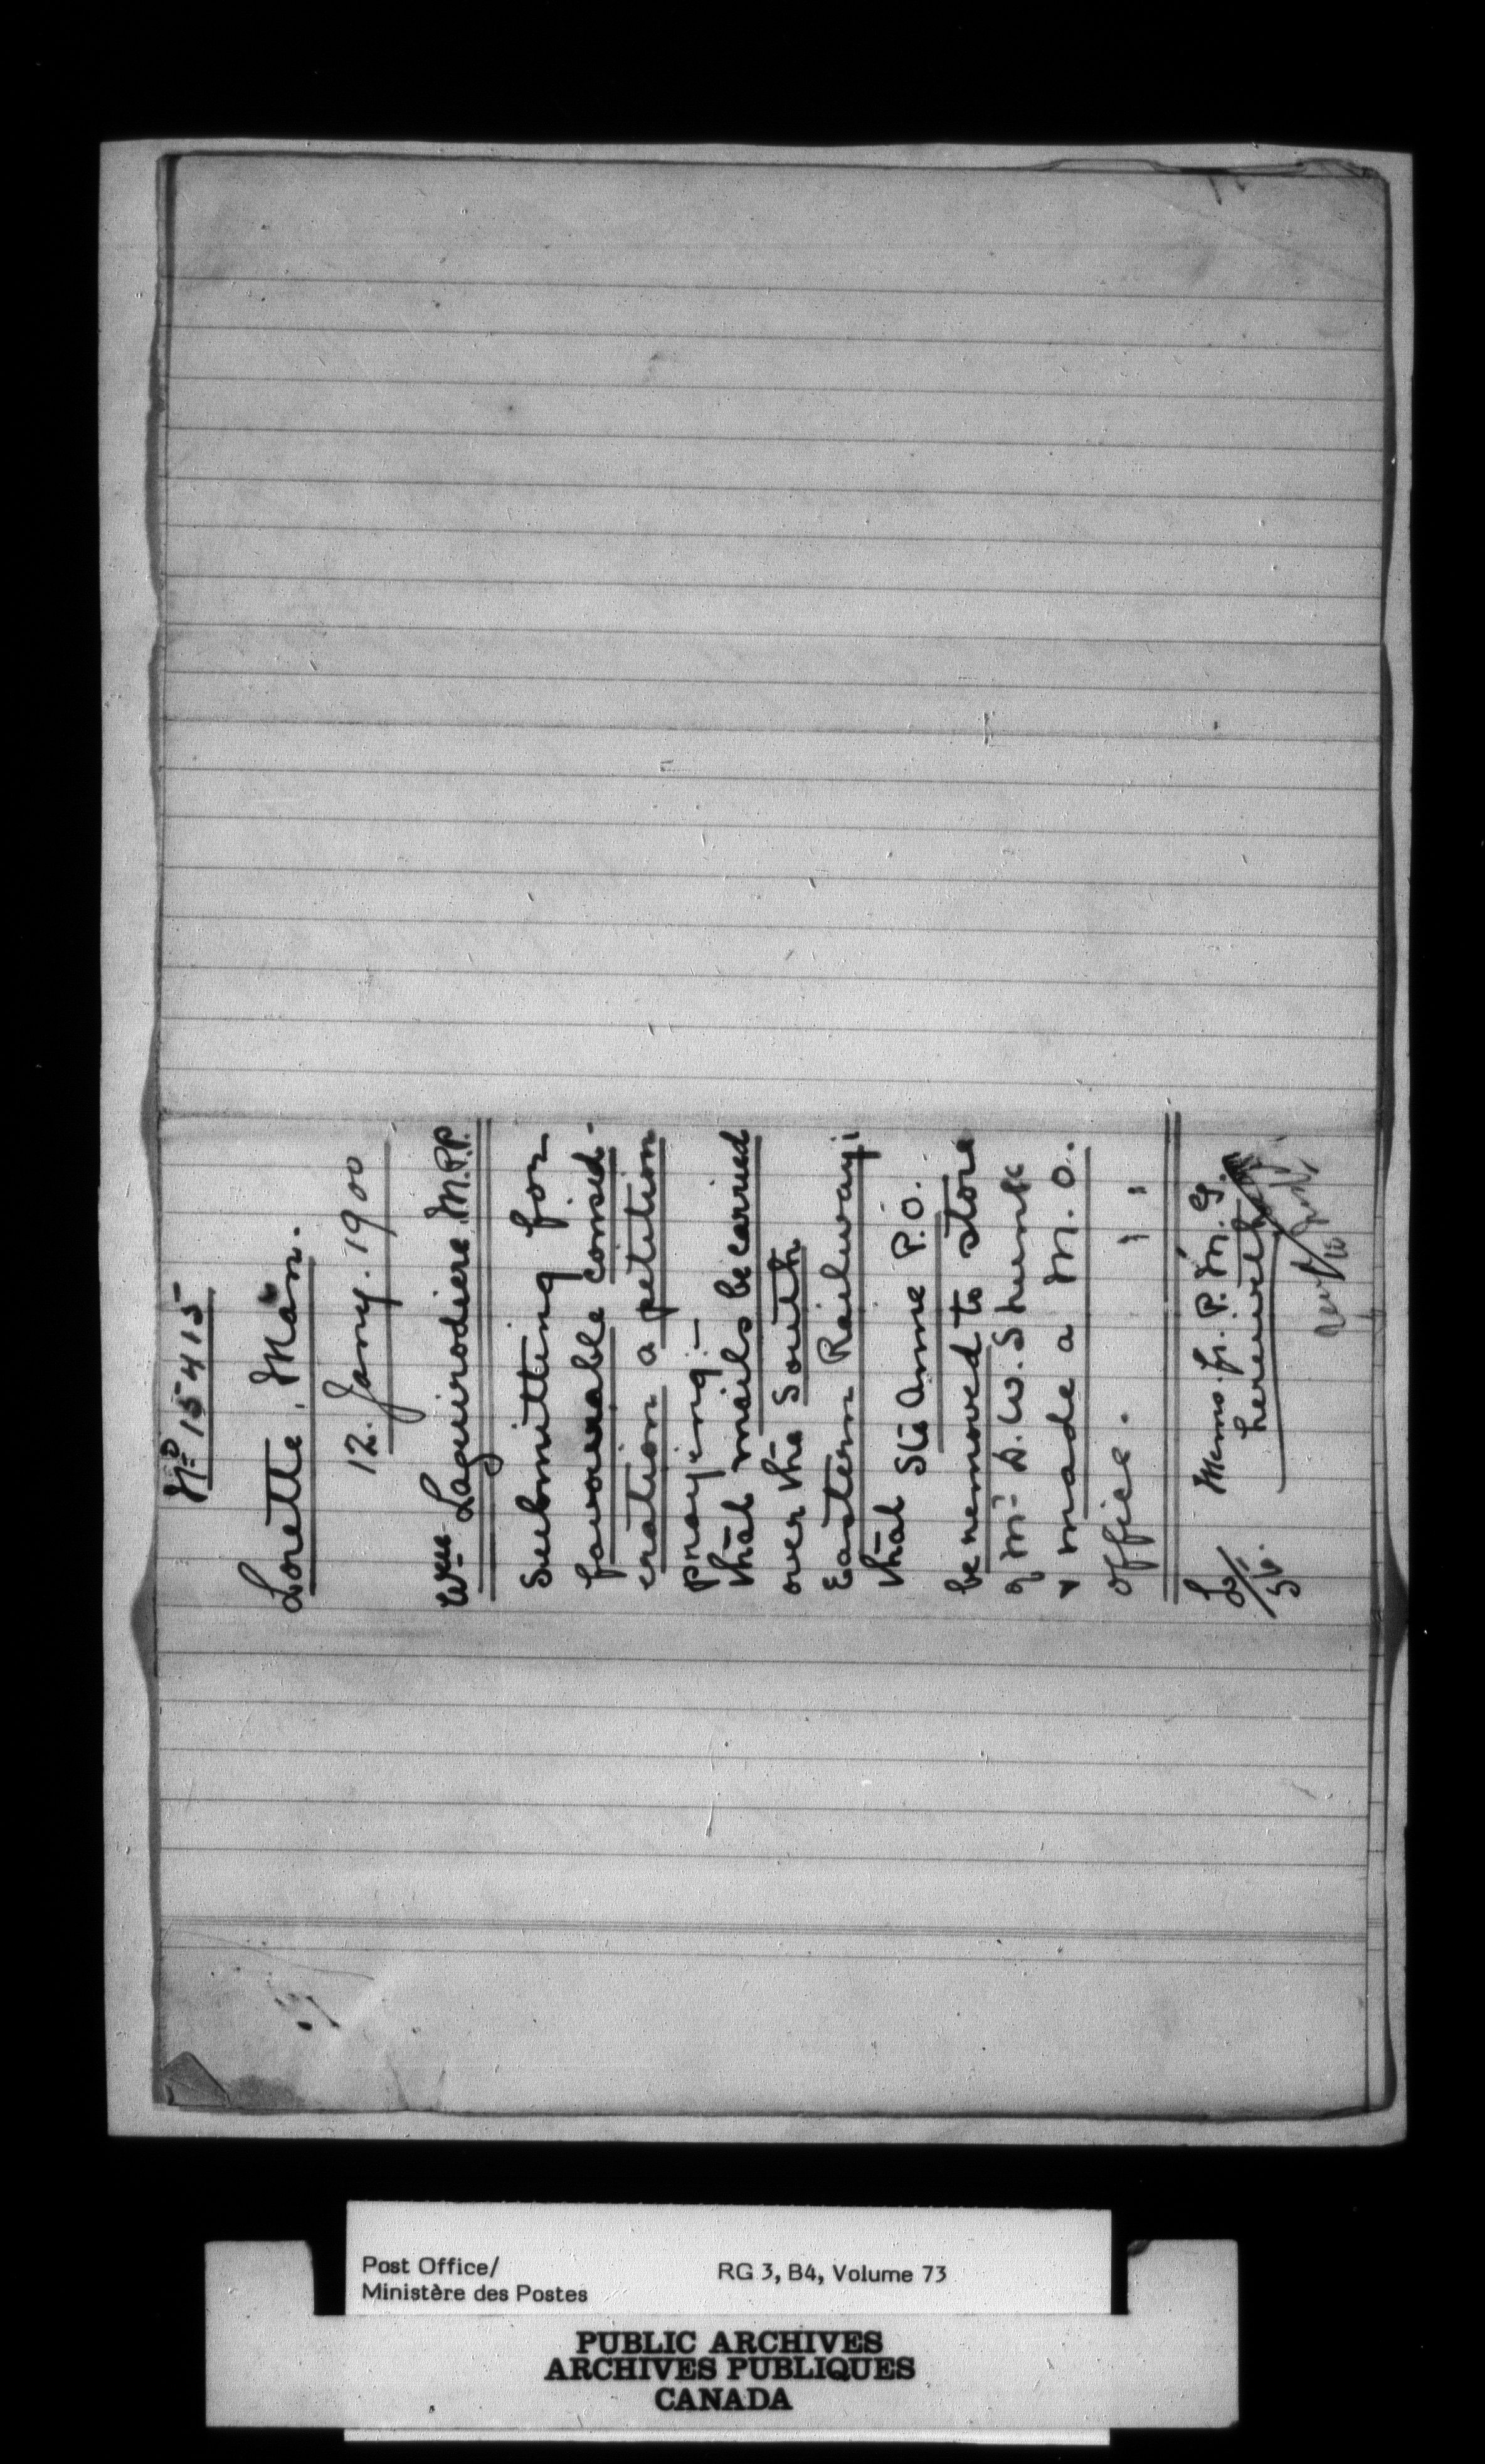 No 15415
Lorette, Man.
12. Jany. 1900
Wm Lagimodiere M.P.P.
Submitting for
favourable consid-
eration a petition
praying:-
that mails be carried
over the South
Eastern Railway;
that Ste Anne P.O.
be removed to store
of Mr D. W. Shunk
& made a M.O.
office.
Memo. fr. P.M.G.
herewith
Post Office/
Ministère des Postes
RG 3, B4, Volume 73
PUBLIC ARCHIVES
ARCHIVES PUBLIQUES
CANADA